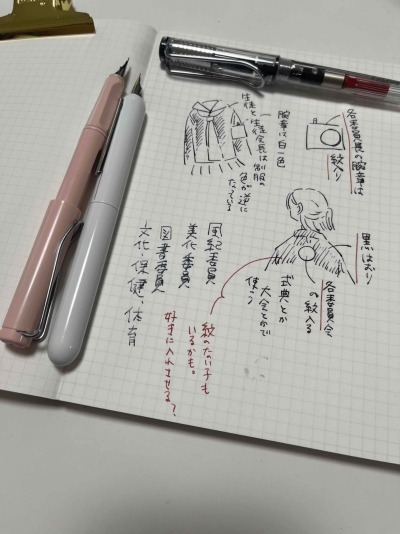 各委員長の腕章は
紋入り
腕章は白一色
生徒会長は制服の
色が逆に
なっている
黒はおり
各委員会
の紋入る
式典とか
大会とかで
使う
紋のない子も
いるかも。
好きに入れさせる?
風紀委員
美化委員
図書委員
文化・保健・体育